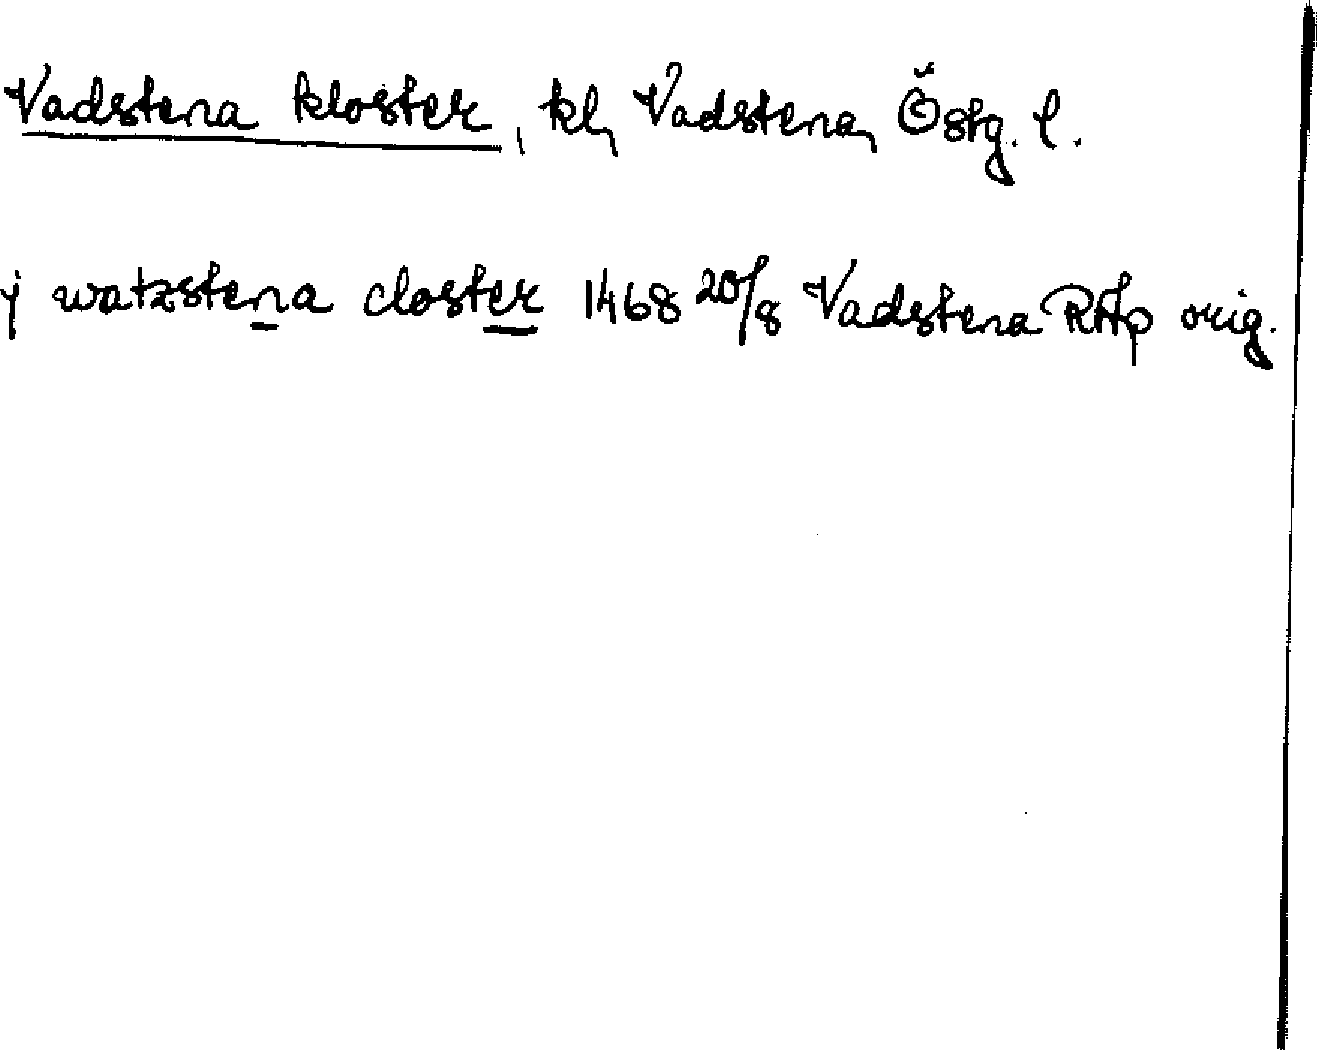 Vadstena kloster, kl, Vadstena, Östg. l.
j watzstena closter 1468 20/8 Vadstena RAp orig.